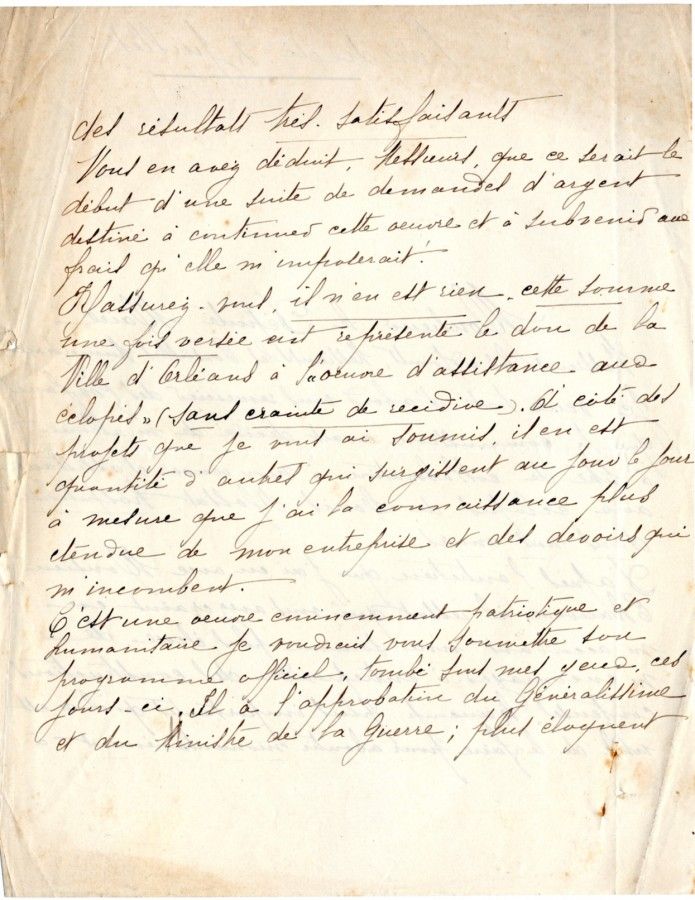 des résultats très satisfaisants
Vous en avez déduit, Messieurs, que ce serait le
début d'une suite de demandes d'argent
destiné à continuer cette oeuvre et à subvenir aux
frais qu'elle m'imposerait.
Rassurez-vous, il n'en est rien, cette somme
une fois versée est représente le don de la
Ville d'Orléans à l'"oeuvre d'assistance aux
éclopés" (sans crainte de récidive). A côté des
projets que je vous ai soumis, il en est
quantité d'autres qui surgissent au jour le jour
à mesure que j'ai la connaissance plus
étendue de mon entreprise et des devoirs qui
m'incombent.
C'est une oeuvre eminemment patriotique et
humanitaire je voudrais vous soumettre son
programme officiel, tombé sous mes yeux, ces
jours-ci. Il a l'approbation du Généralissime
et du Ministre de la Guerre; plus éloquent